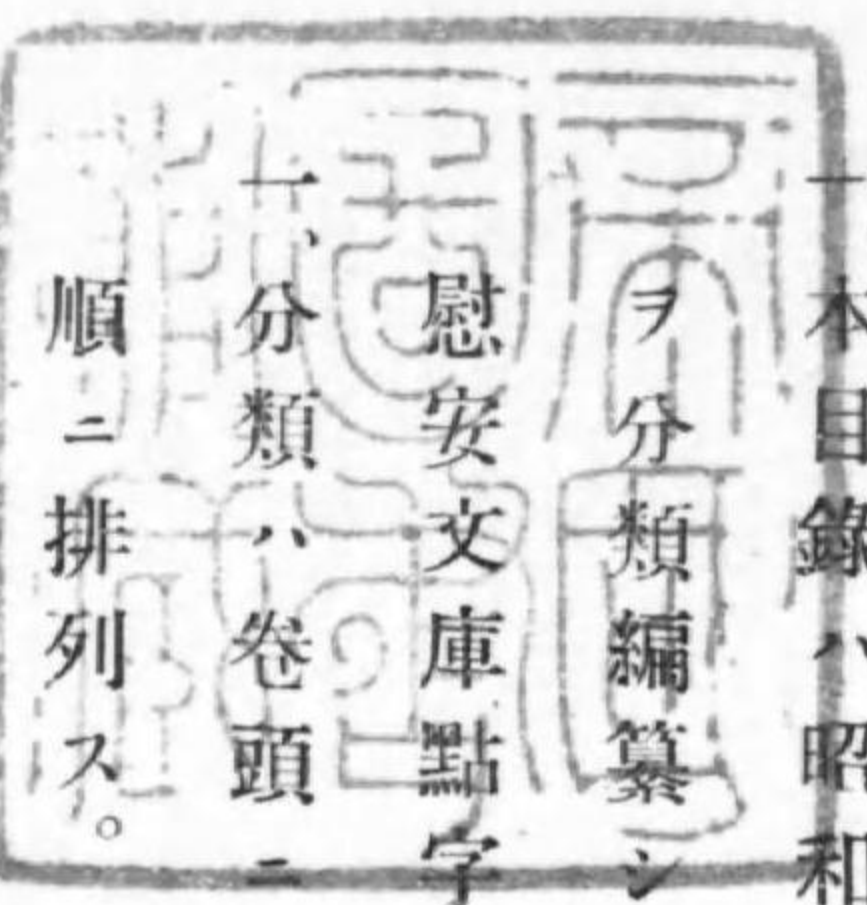 一 本目錄ハ昭和
ヲ分類編纂シ
慰安文庫點字
一、分類ハ卷頭ニ
順ニ排列ス。